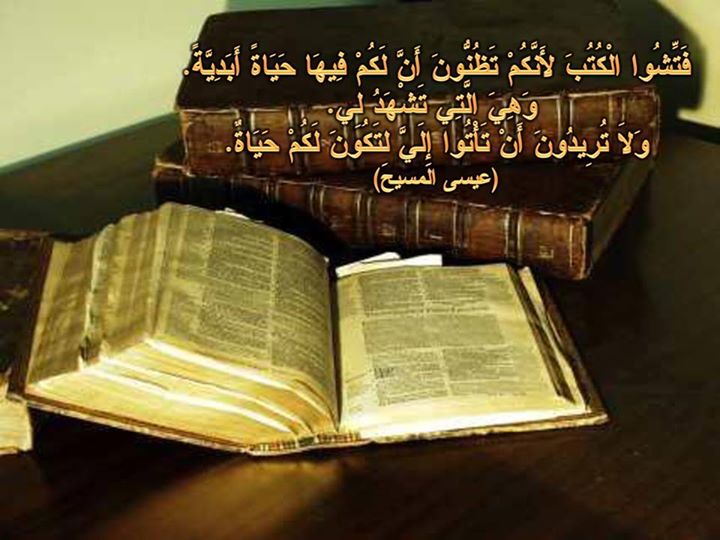 فَتِّشُوا الْكُتُبَ لأَنَّكُمْ تَظُنُّونَ أَنَّ لَكُمْ فِيهَا حَيَاةً أَبَدِيَّةً.
وَهِيَ الَّتِي تَشْهَدُ لِي.
وَلاَ تُرِيدُونَ أَنْ تَأْتُوا إِلَيَّ لتَكُونَ لَكُمْ حَيَاةٌ.
(عيسى المسيحَ)